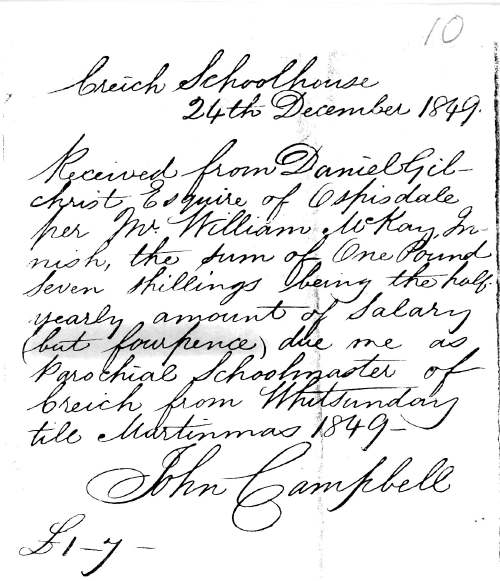 10
Creich Schoolhouse
24th December 1849.
Received from Daniel Gil-
christ Esquire of Ospisdale
per Mr. William McKay, In-
nish, the sum of One Pound
seven shillings being the half-
yearly amount of Salary
(but fourpence) due me as
Parochial Schoolmaster of
Creich from Whitsunday
till Martinmas 1849-
John Campbell
£1-7-